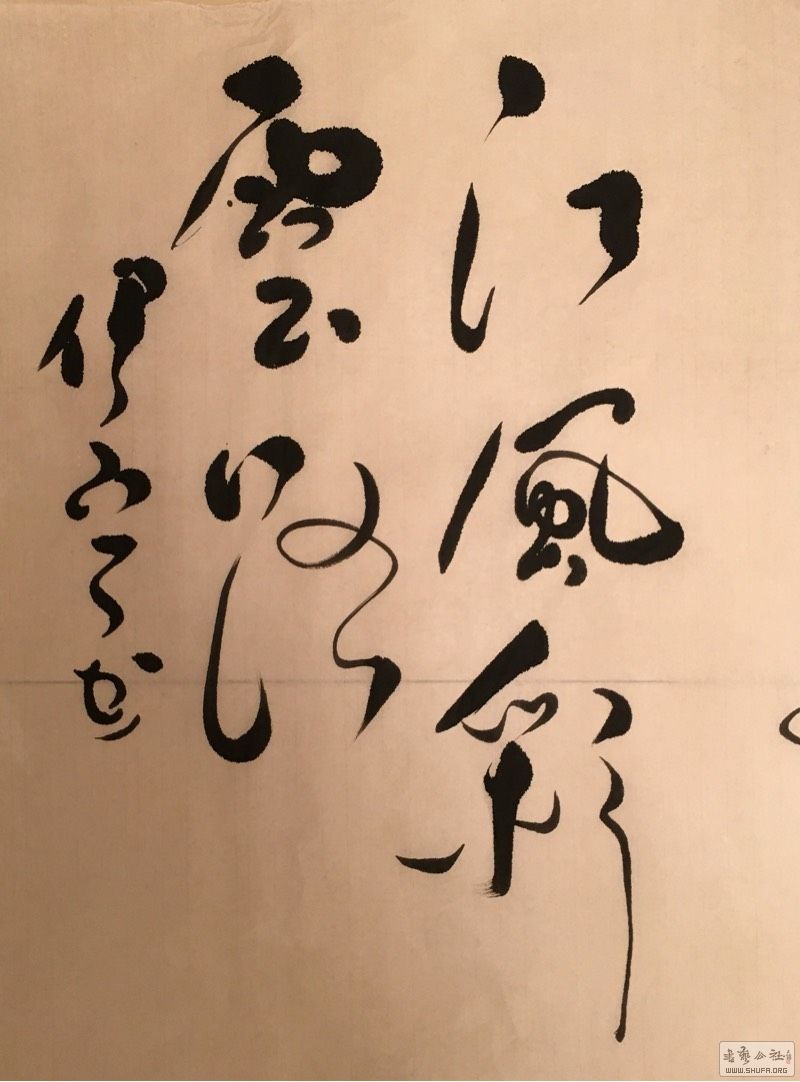 江風彩
雲路
伊
書藝公社
WWW.SHUFA.ORG